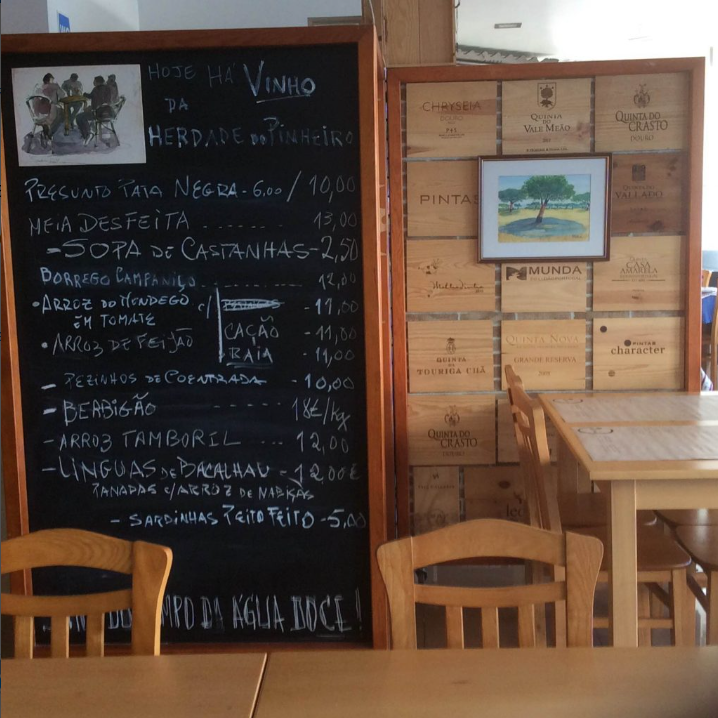 HOJE HÁ VINHO
DA
HERDADE DO PINHEIRO
PRESUNTO PATA NEGRA - 6.00 / 10,00
MEIA DESFEITA ........ 13,00
- SOPA DE CASTANHAS - 2,50
BORREGO CAMPANIÇO ........ 12,00
• ARROZ DO MONDEGO c/ - 11,00
EM TOMATE CAÇÃO - 11,00
• ARROZ DE FEIJÃO RAIA - 11,00
- PEZINHOS DE COENTRADA - 10,00
- BERBIGÃO ------ 18€/kg
- ARROZ TAMBORIL --- 12,00
- LINGUAS DE BACALHAU - 12,00€
PANADAS C/ARROZ DE NABIÇAS
- SARDINHAS PEITO FEITO - 5,00
DA ÁGUA DOCE!
CHRYSEIA
DOURO
QUINTA
DO
VALE MEÃO
QUINTA DO
CRASTO
DOURO
PINTAS
VALLADO
MUNDA
CASA
AMARELA
QUINTA
DA
TOURIGA CHÃ
QUINTA NOVA
GRANDE RESERVA
PINTAS
character
QUINTA DO
CRASTO